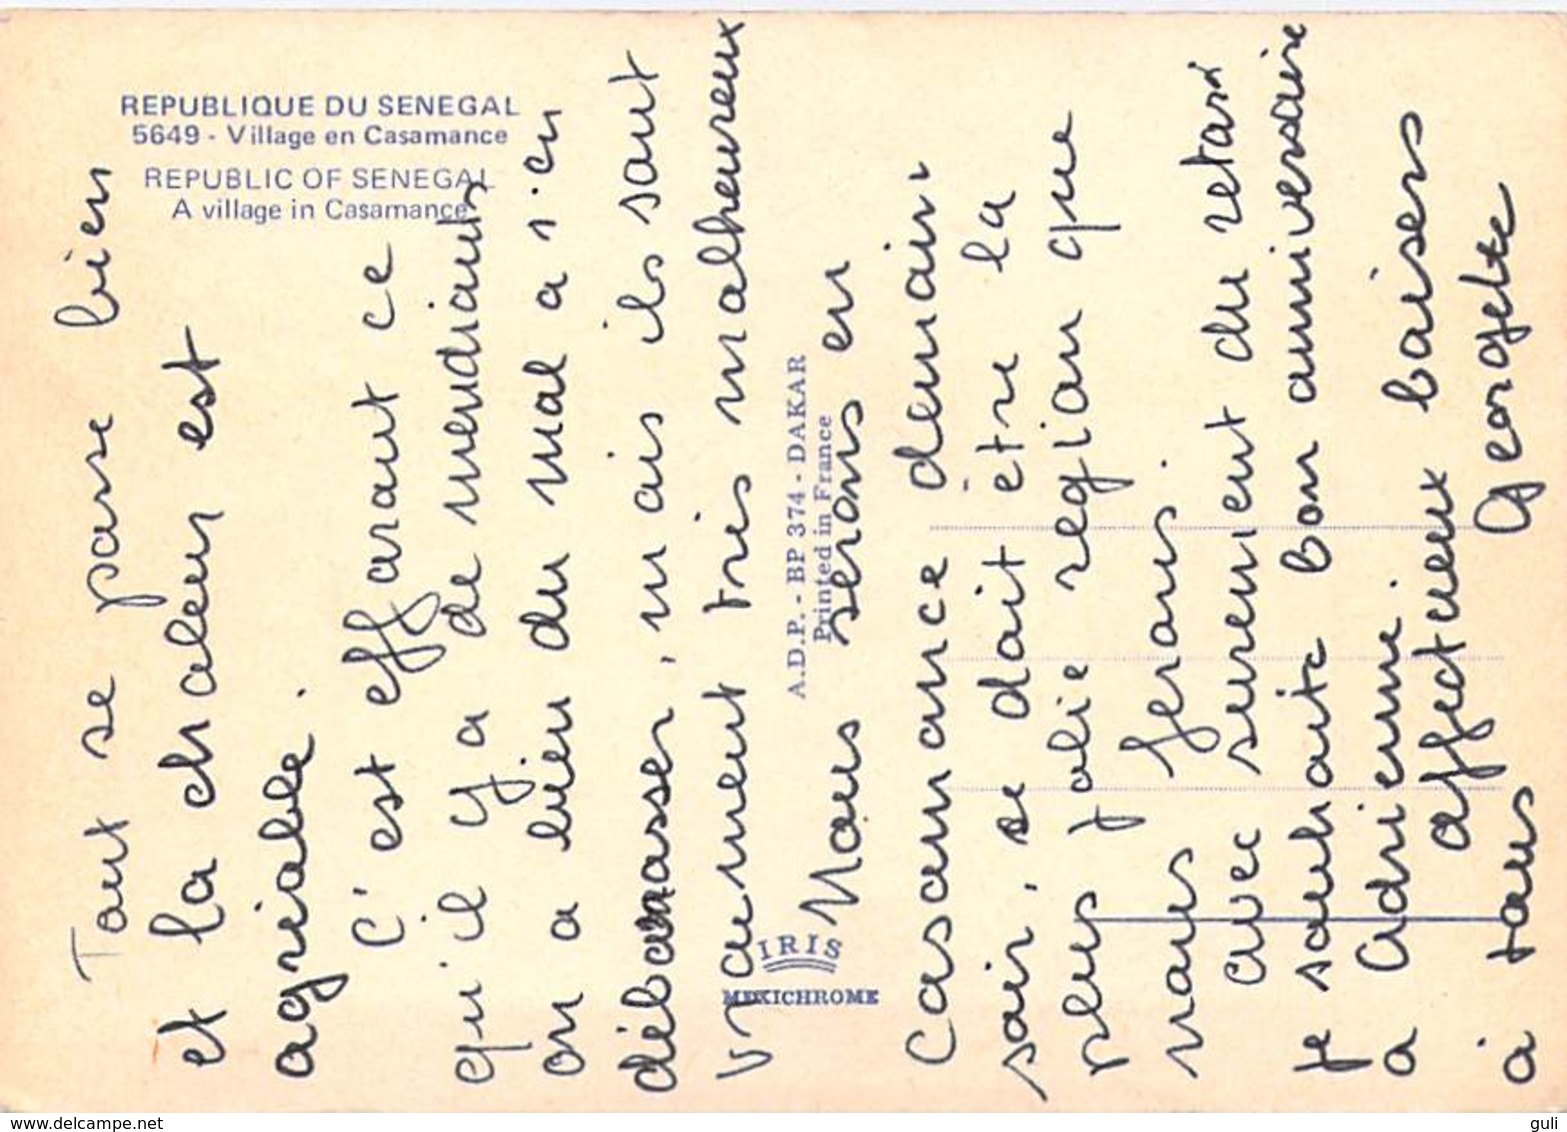 REPUBLIQUE DU SENEGAL
5649 - Village en Casamance
REPUBLIC OF SENEGAL
A village in Casamance
Tout se passe bien
et la chaleur est
agréable.
C'est effarant ce
qu'il y a de mendiants
on a bien du mal a s'en
débarrasser, mais ils sont
vraiment très malheureux
A.D.P. - BP 374 - DAKAR
Printed in France
IRIS
MEXICHROME
Nous serons en
Casamance demain
soir, ce doit être la
plus jolie region que
nous ferons.
avec surement du retard
je souhaite bon anniversaire
a Adrienne.
affectueux baisers
à tous Georgette
delcampe.net
guli